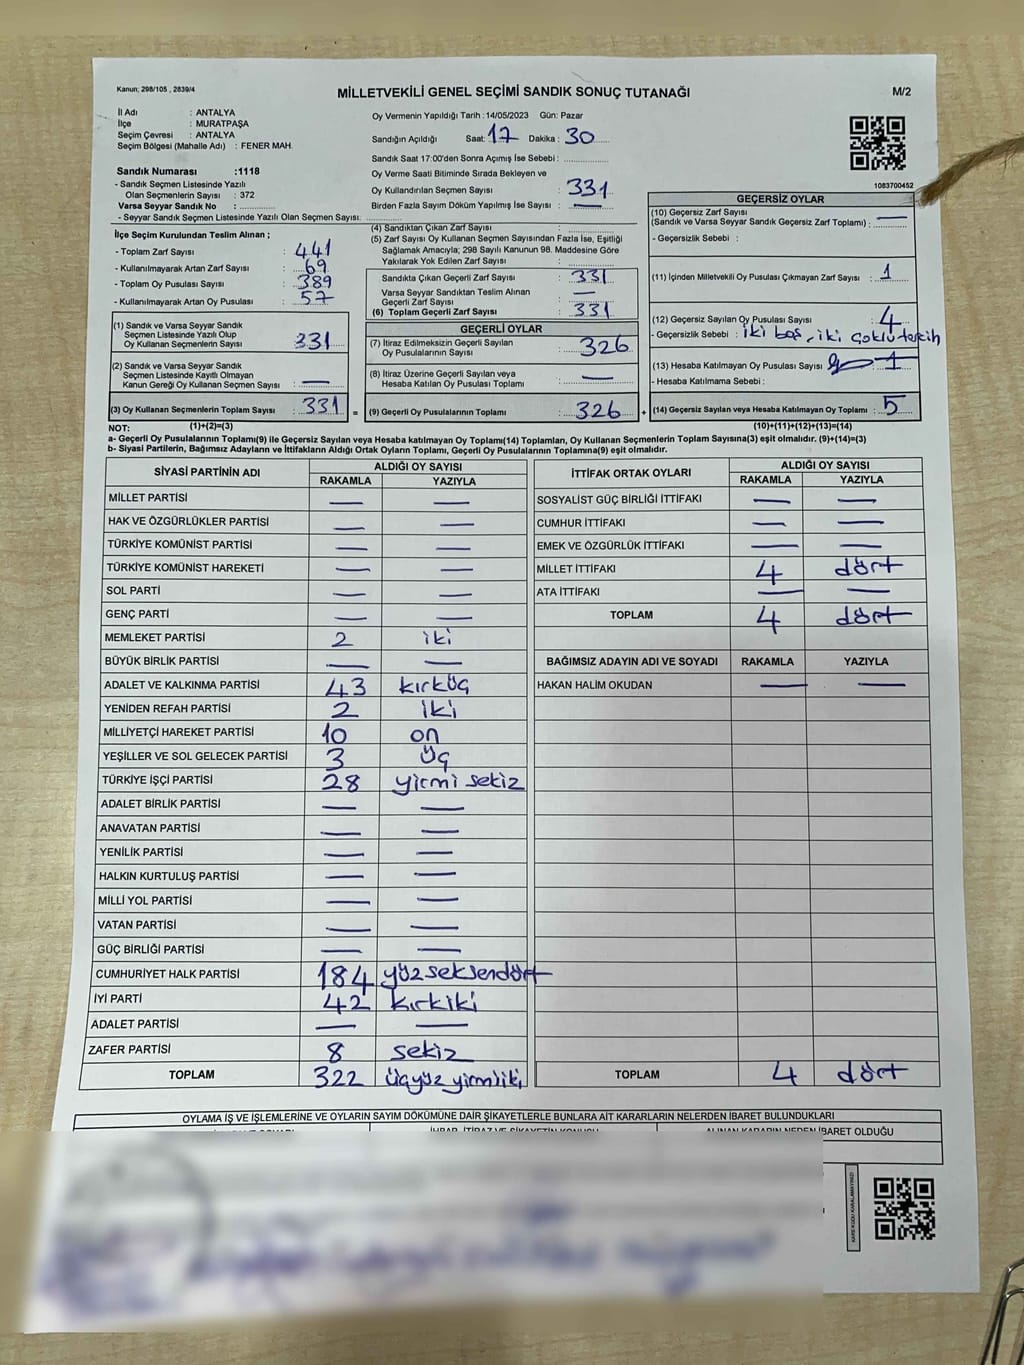 Kanun; 298/105 , 2839/4
MİLLETVEKİLİ GENEL SEÇİMİ SANDIK SONUÇ TUTANAĞI
M/2
İl Adı : ANTALYA
İlçe : MURATPAŞA
Seçim Çevresi : ANTALYA
Seçim Bölgesi (Mahalle Adı) : FENER MAH.
Sandık Numarası :1118
- Sandık Seçmen Listesinde Yazılı
Olan Seçmenlerin Sayısı : 372
Varsa Seyyar Sandık No :
- Seyyar Sandık Seçmen Listesinde Yazılı Olan Seçmen Sayısı:
Oy Vermenin Yapıldığı Tarih :14/05/2023 Gün: Pazar
Sandığın Açıldığı Saat: 17 Dakika : 30
Sandık Saat 17:00'den Sonra Açımış İse Sebebi :
Oy Verme Saati Bitiminde Sırada Bekleyen ve
Oy Kullandırılan Seçmen Sayısı : 331
Birden Fazla Sayım Döküm Yapılmış İse Sayısı : —
1083700452
İlçe Seçim Kurulundan Teslim Alınan ;
- Toplam Zarf Sayısı : 441
- Kullanılmayarak Artan Zarf Sayısı : 69
- Toplam Oy Pusulası Sayısı : 389
- Kullanılmayarak Artan Oy Pusulası : 57
(1) Sandık ve Varsa Seyyar Sandık
Seçmen Listesinde Yazılı Olup
Oy Kullanan Seçmenlerin Sayısı : 331
(2) Sandık ve Varsa Seyyar Sandık
Seçmen Listesinde Kayıtlı Olmayan
Kanun Gereği Oy Kullanan Seçmen Sayısı : —
(3) Oy Kullanan Seçmenlerin Toplam Sayısı : 331 =
(4) Sandıktan Çıkan Zarf Sayısı :
(5) Zarf Sayısı Oy Kullanan Seçmen Sayısından Fazla İse, Eşitliği
Sağlamak Amacıyla; 298 Sayılı Kanunun 98. Maddesine Göre
Yakılarak Yok Edilen Zarf Sayısı :
Sandıkta Çıkan Geçerli Zarf Sayısı : 331
Varsa Seyyar Sandıktan Teslim Alınan
Geçerli Zarf Sayısı : —
(6) Toplam Geçerli Zarf Sayısı : 331
GEÇERLİ OYLAR
(7) İtiraz Edilmeksizin Geçerli Sayılan
Oy Pusulasının Sayısı : 326
(8) İtiraz Üzerine Geçerli Sayılan veya
Hesaba Katılan Oy Pusulası Toplamı : —
(9) Geçerli Oy Pusulalarının Toplamı : 326 +
GEÇERSİZ OYLAR
(10) Geçersiz Zarf Sayısı : —
(Sandık ve Varsa Seyyar Sandık Geçersiz Zarf Toplamı) :
- Geçersizlik Sebebi :
(11) İçinden Milletvekili Oy Pusulası Çıkmayan Zarf Sayısı : 1
(12) Geçersiz Sayılan Oy Pusulası Sayısı : 4
- Geçersizlik Sebebi : iki boş, iki çoklu tercih
(13) Hesaba Katılmayan Oy Pusulası Sayısı : 1
- Hesaba Katılmama Sebebi :
(14) Geçersiz Sayılan veya Hesaba Katılmayan Oy Toplamı : 5
NOT: (1)+(2)=(3) (10)+(11)+(12)+(13)=(14)
a- Geçerli Oy Pusulalarının Toplamı(9) ile Geçersiz Sayılan veya Hesaba katılmayan Oy Toplamı(14) Toplamları, Oy Kullanan Seçmenlerin Toplam Sayısına(3) eşit olmalıdır. (9)+(14)=(3)
b- Siyasi Partilerin, Bağımsız Adayların ve İttifakların Aldığı Ortak Oyların Toplamı, Geçerli Oy Pusulalarının Toplamına(9) eşit olmalıdır.
SİYASİ PARTİNİN ADI ALDIĞI OY SAYISI
RAKAMLA YAZIYLA
MİLLET PARTİSİ — —
HAK VE ÖZGÜRLÜKLER PARTİSİ — —
TÜRKİYE KOMÜNİST PARTİSİ — —
TÜRKİYE KOMÜNİST HAREKETİ — —
SOL PARTİ — —
GENÇ PARTİ — —
MEMLEKET PARTİSİ 2 iki
BÜYÜK BİRLİK PARTİSİ — —
ADALET VE KALKINMA PARTİSİ 43 kırküç
YENİDEN REFAH PARTİSİ 2 iki
MİLLİYETÇİ HAREKET PARTİSİ 10 on
YEŞİLLER VE SOL GELECEK PARTİSİ 3 üç
TÜRKİYE İŞÇİ PARTİSİ 28 yirmi sekiz
ADALET BİRLİK PARTİSİ — —
ANAVATAN PARTİSİ — —
YENİLİK PARTİSİ — —
HALKIN KURTULUŞ PARTİSİ — —
MİLLİ YOL PARTİSİ — —
VATAN PARTİSİ — —
GÜÇ BİRLİĞİ PARTİSİ — —
CUMHURİYET HALK PARTİSİ 184 yüz seksendört
İYİ PARTİ 42 kırkiki
ADALET PARTİSİ — —
ZAFER PARTİSİ 8 sekiz
TOPLAM 322 üçyüz yirmiiki
İTTİFAK ORTAK OYLARI ALDIĞI OY SAYISI
RAKAMLA YAZIYLA
SOSYALİST GÜÇ BİRLİĞİ İTTİFAKI — —
CUMHUR İTTİFAKI — —
EMEK VE ÖZGÜRLÜK İTTİFAKI — —
MİLLET İTTİFAKI 4 dört
ATA İTTİFAKI — —
TOPLAM 4 dört
BAĞIMSIZ ADAYIN ADI VE SOYADI RAKAMLA YAZIYLA
HAKAN HALİM OKUDAN — —
TOPLAM 4 dört
OYLAMA İŞ VE İŞLEMLERİNE VE OYLARIN SAYIM DÖKÜMÜNE DAİR ŞİKAYETLERLE BUNLARA AİT KARARLARIN NELERDEN İBARET BULUNDUKLARI
İHBAR, İTİRAZ VE ŞİKAYETİN KONUSU ALINAN KARARIN NEDEN İBARET OLDUĞU
KARE KODU KARALAMAYINIZ!